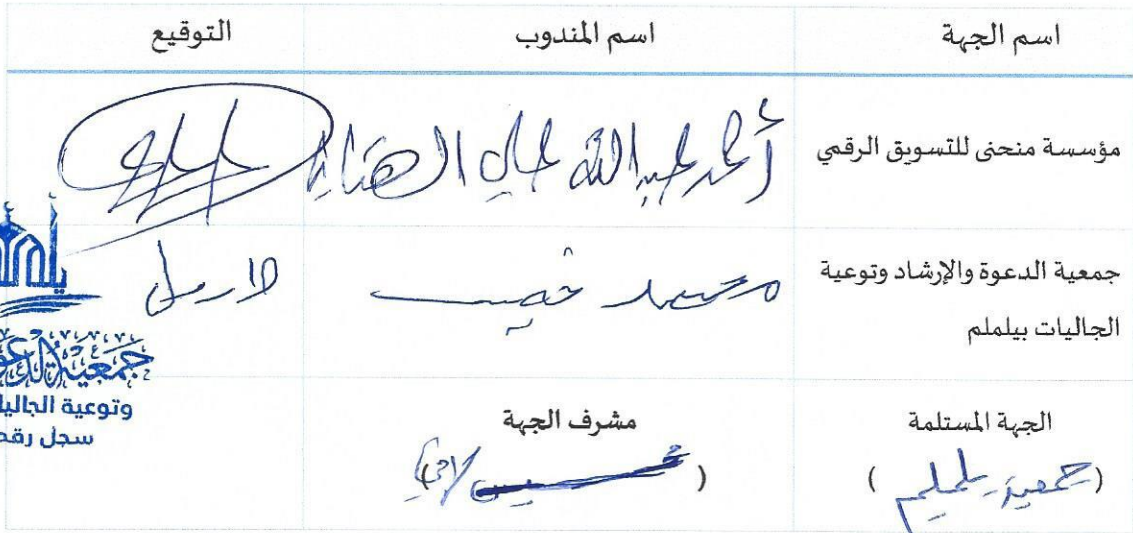 اسم الجهة اسم المندوب التوقيع
مؤسسة منحنى للتسويق الرقمي أحمد عبدالله علي
جمعية الدعوة والإرشاد وتوعية
الجاليات بيلملم
محمد
الجهة المستلمة مشرف الجهة
(جمعية يلملم)
يلملم
جمعية الدعو
وتوعية الجاليا
سجل رقم